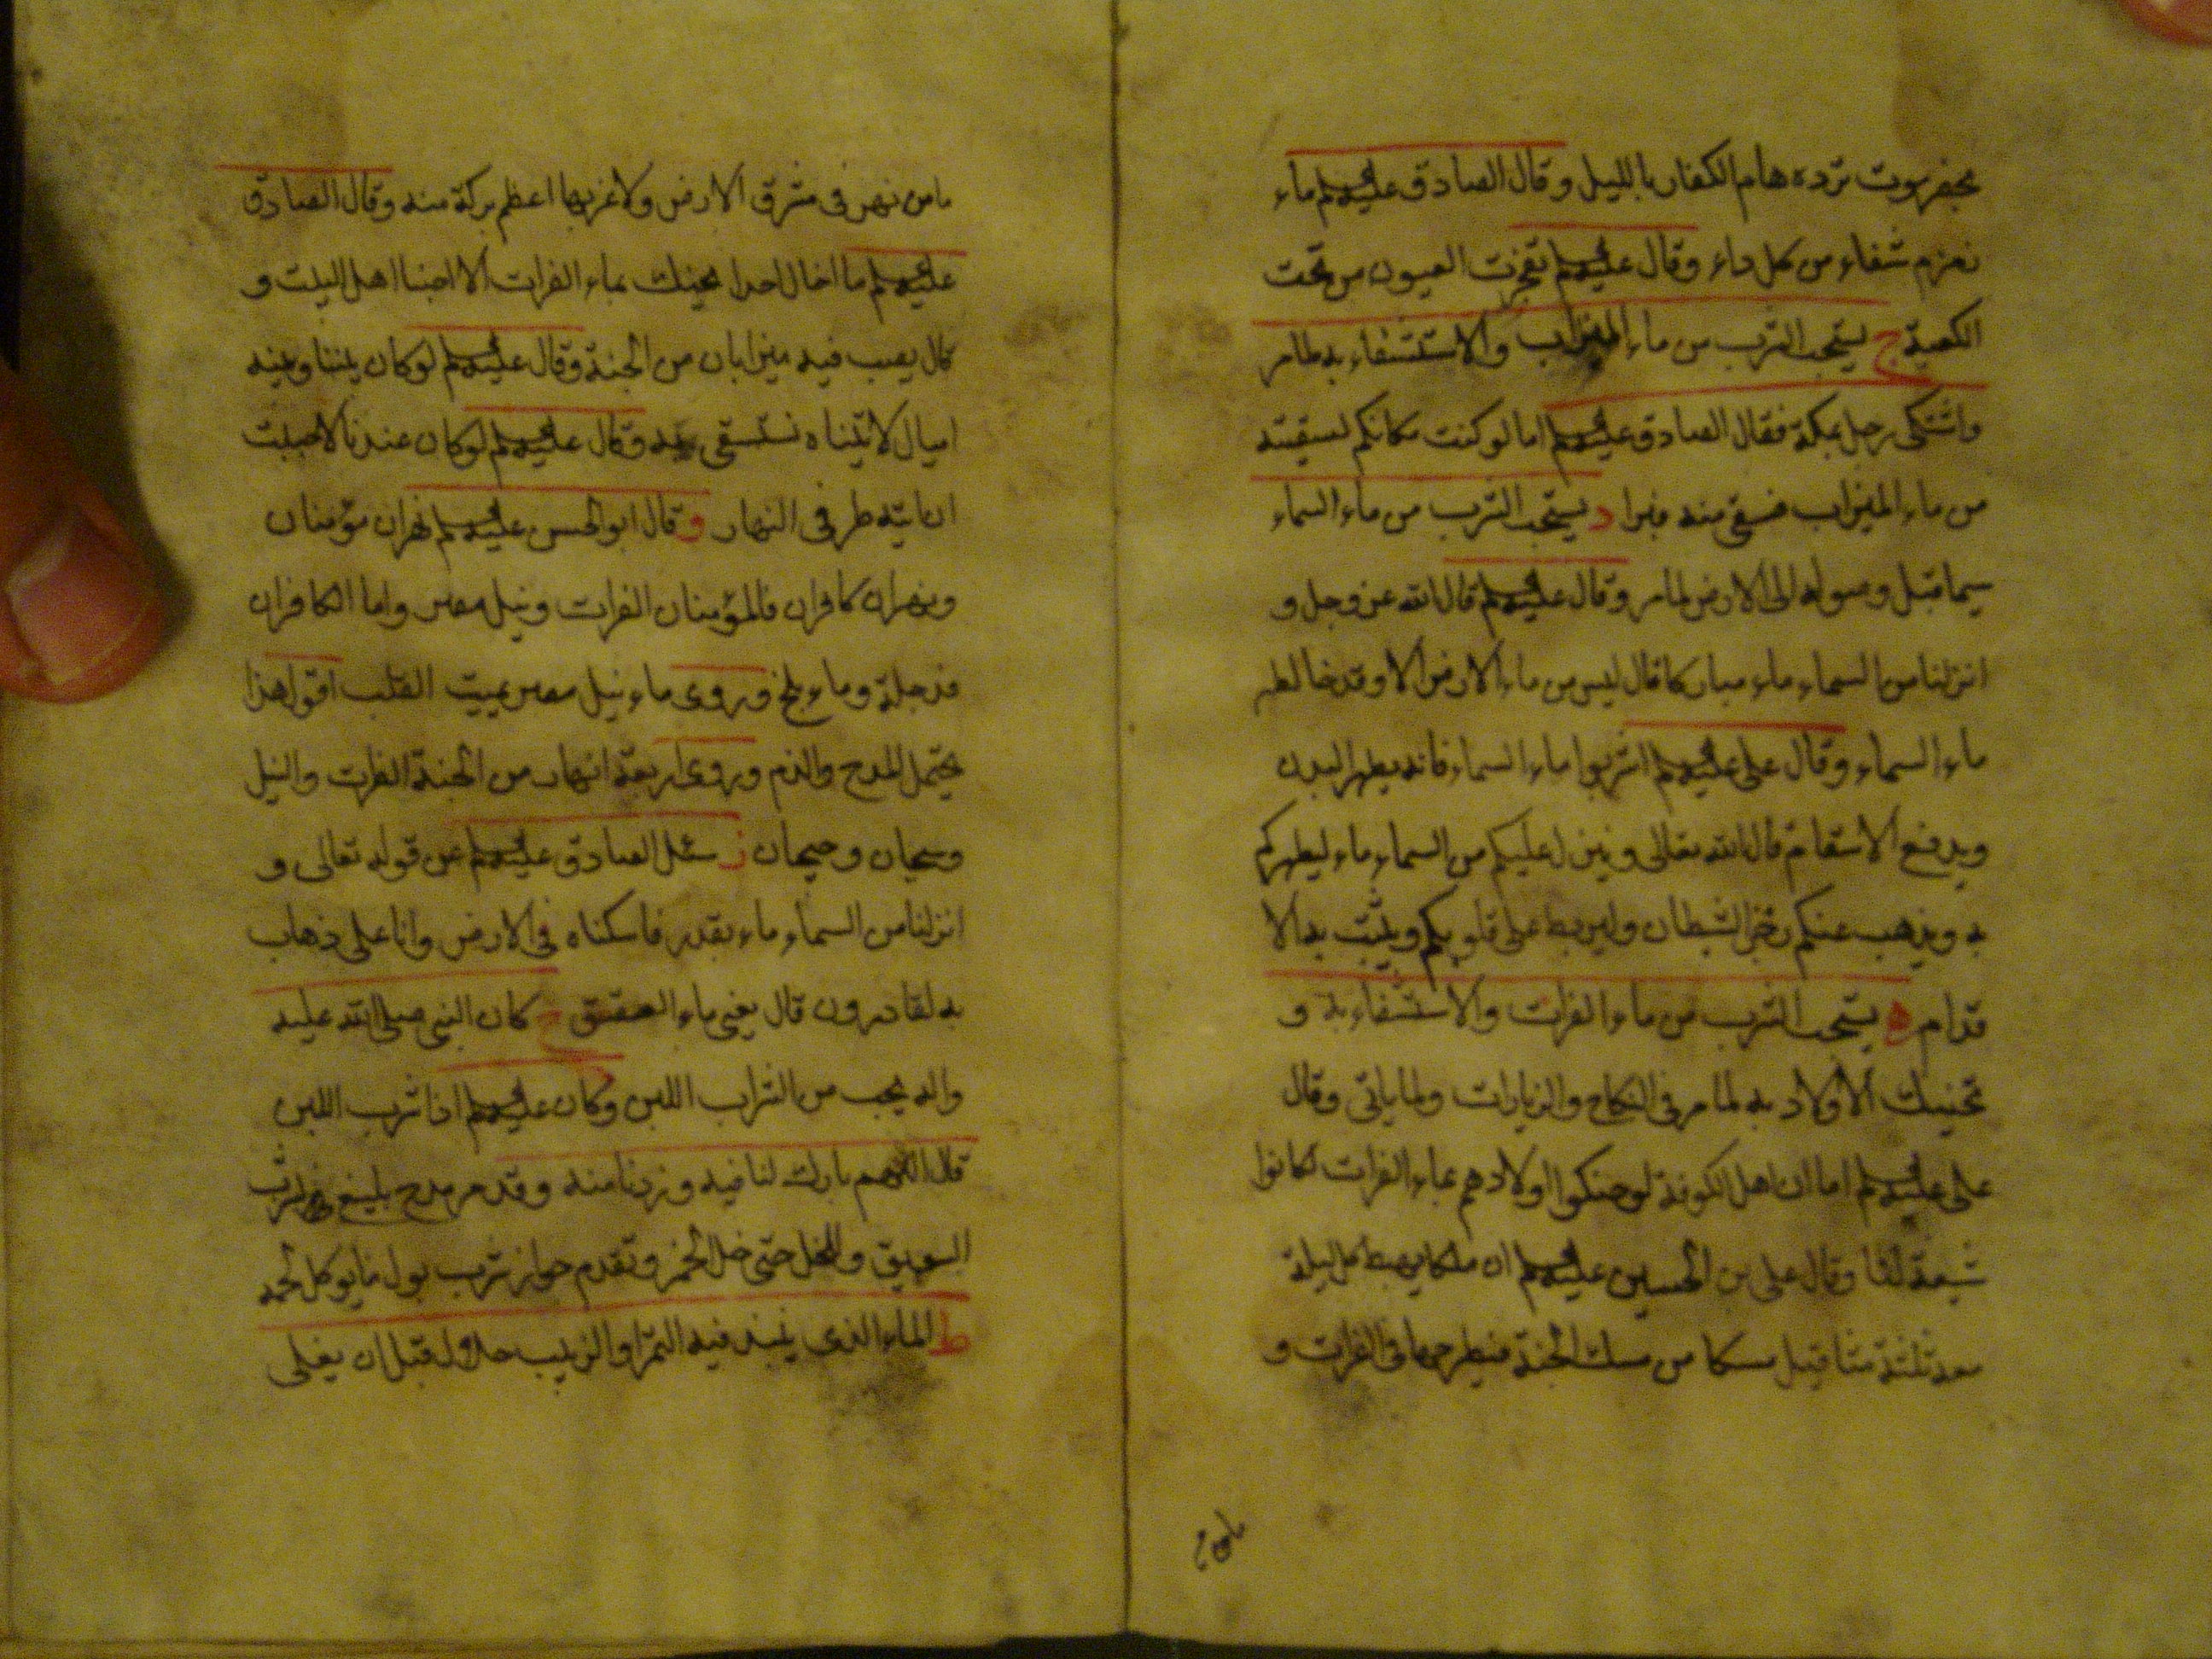 بحضرموت ترده هام الكفار بالليل وقال الصادق عليه‌السلم ماء
زمزم شفاء من كل داء وقال عليه‌السلم تفجرت العيون من تحت
الكعبة ج يستحب الشرب من ماء الميزاب والاستشفاء به لما مر
واشتكى رجل بمكة فقال الصادق عليه‌السلم اما لو كنت مكانكم لسقيته
من ماء الميزاب فسقى منه فبرا د يستحب الشرب من ماء السماء
سيما قبل وصوله الى الارض لما مر وقال عليه‌السلم قال الله عز وجل و
انزلنا من السماء ماء مباركا قال ليس من ماء الارض الا وقد خالطه
ماء السماء وقال على عليه‌السلم اشربوا ماء السماء فانه يطهر البدن
ويدفع الاسقام قال الله تعالى وينزل عليكم من السماء ماء ليطهركم
به ويذهب عنكم رجز الشيطان وليربط على قلوبكم ويثبت به الا
قدام ه يستحب الشرب من ماء الفرات والاستشفاء به و
تحنيك الاولاد به لما مر فى النكاح والزيارات ولما ياتى وقال
على عليه‌السلم اما ان اهل الكوفة لو حنكوا اولادهم بماء الفرات لكانوا
شيعة لنا وقال على بن الحسين عليه‌السلم ان ملكا يهبط كل ليلة
معه ثلثة مثاقيل مسكا من مسك الجنة فيطرحها فى الفرات و
ما من
ما من نهر فى شرق الارض ولا غربها اعظم بركة منه وقال الصادق
عليه‌السلم ما اخال احدا يحنك بماء الفرات الا احبنا اهل البيت و
كال يصب فيه ميزابان من الجنة وقال عليه‌السلم لو كان بيننا وبينه
اميال لاتيناه نستسقى به وقال عليه‌السلم لو كان عندنا لاحببت
ان اتيه طرفى النهار و قال ابو الحسن عليه‌السلم نهران مؤمنان
ونهران كافران فالمؤمنان الفرات ونيل مصر واما الكافران
فدجلة وماء بلخ وروى ماء نيل مصر يميت القلب اقول هذا
يحتمل المدح والذم وروى اربعة انهار من الجنة الفرات والنيل
وسيحان وجيحان ز سئل الصادق عليه‌السلم عن قوله تعالى و
انزلنا من السماء ماء بقدر فاسكناه فى الارض وانا على ذهاب
به لقادرون قال يعنى ماء العقيق ح كان النبى صلى الله عليه
واله يحب من الشراب اللبن وكان عليه‌السلم اذا شرب اللبن
قال اللهم بارك لنا فيه وزدنا منه وقد مر مدح بليغ فى شرب
السويق والخل حتى خل الخمر وتقدم جواز شرب بول ما يوكل لحمه
ط الماء الذى ينبذ فيه التمر او الزبيب حلال قبل ان يغلى